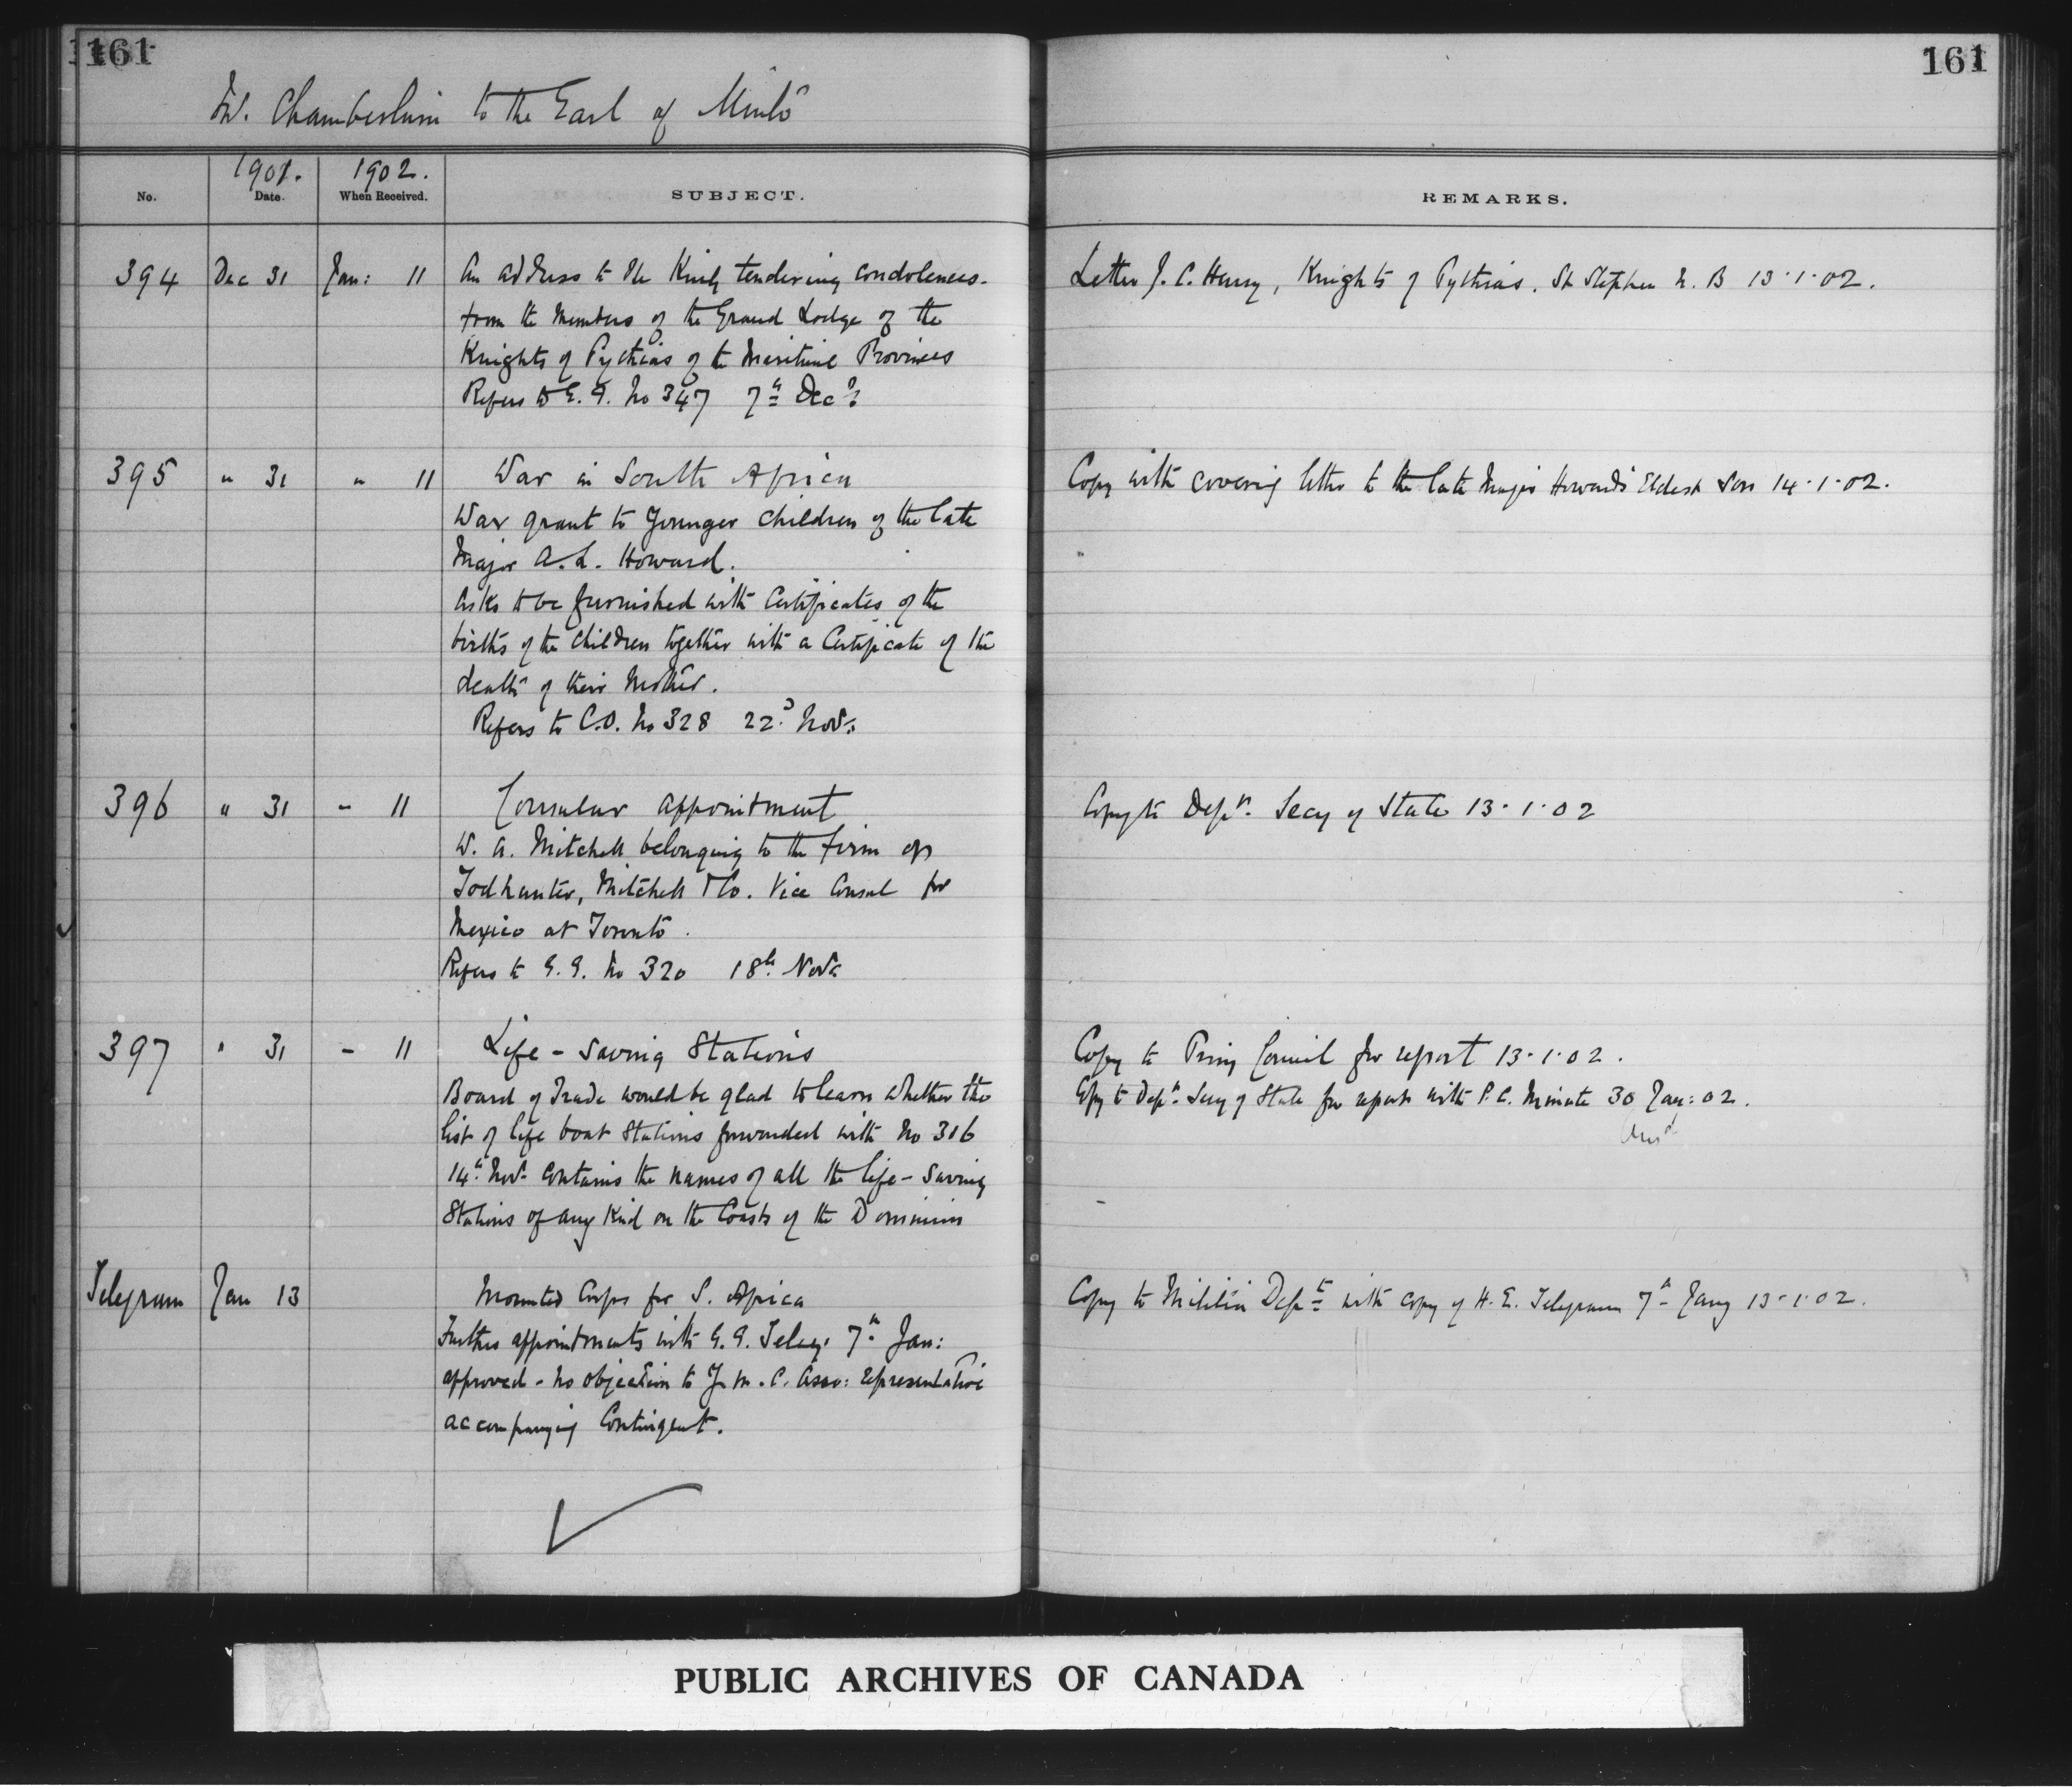 161
161
Mr. Chamberlain to the Earl of Minto
1901.
1902.
No.
Date.
When Received.
SUBJECT.
REMARKS.
394 Dec 31 Jan: 11 An address to the King tendering condolences.
from the Members of the Grand Lodge of the
Knights of Pythias of the Maritime Provinces
Refers to G. G. No 347 7th Decr
Letter J. C. Henry, Knights of Pythias. St Stephen N. B 13.1.02.
395 " 31 " 11 War in South Africa
War grant to Younger Children of the late
Major A. L. Howard.
Asks to be furnished with Certificates of the
births of the Children together with a Certificate of the
death of their Mother.
Refers to C.O. No 328 22d Nov:
Copy with covering letter to the late Major Howard's Eldest Son 14.1.02.
396 " 31 - 11 Consular appointment
W. A. Mitchell belonging to the firm of
Todhunter, Mitchell & Co. Vice Consul for
Mexico at Toronto.
Refers to G. G. No 320 18th Nov:
Copy to Depy. Secy of State 13.1.02
397 " 31 - 11 Life-Saving Stations
Board of Trade would be glad to learn whether the
list of life boat Stations forwarded with No 316
14th Nov. contains the names of all the life-saving
Stations of any Kind on the Coasts of the Dominion
Copy to Privy Council for report 13.1.02.
Copy to Depy. Secy of State for report with P. C. Minute 30 Jan: 02.
Ansd
Telegram Jan 13 Mounted Corps for S. Africa
Further appointments with G. G. Teleg: 7th Jan:
approved - no objection to Y. M. C. Asso: representative
accompanying Contingent.
Copy to Militia Dept with copy of H. E. Telegram 7th Jany 13.1.02.
PUBLIC ARCHIVES OF CANADA